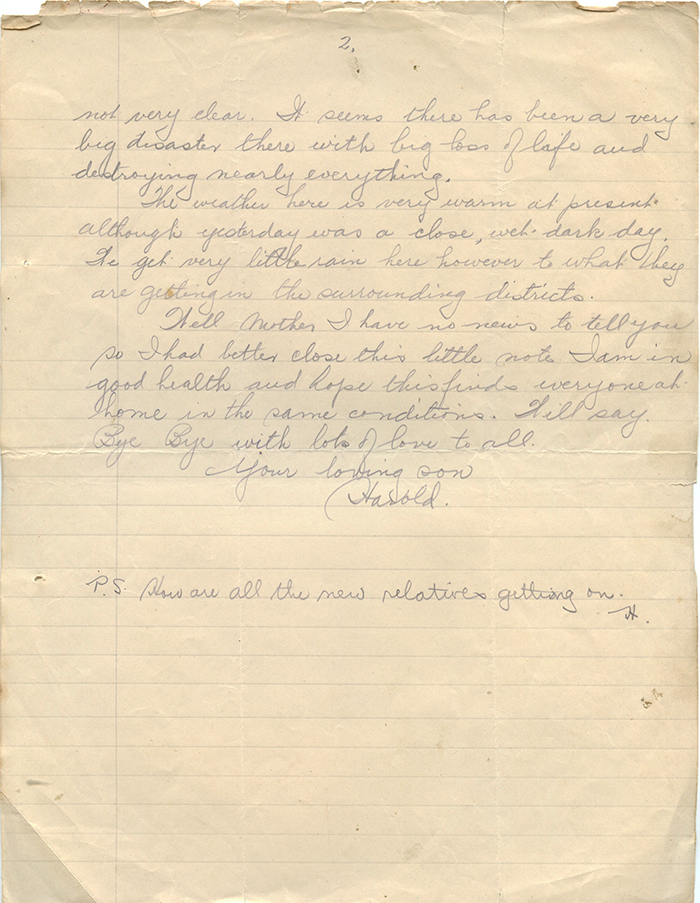 2.
not very clear. It seems there has been a very
big disaster there with big loss of life and
destroying nearly everything.
The weather here is very warm at present
although yesterday was a close, wet dark day.
We get very little rain here however to what they
are getting in the surrounding districts.
Well Mother I have no news to tell you
so I had better close this little note I am in
good health and hope this finds everyone at
home in the same conditions. Will say.
Bye Bye with lots of love to all.
Your loving son
Harold.
P.S. How are all the new relatives getting on.
H.